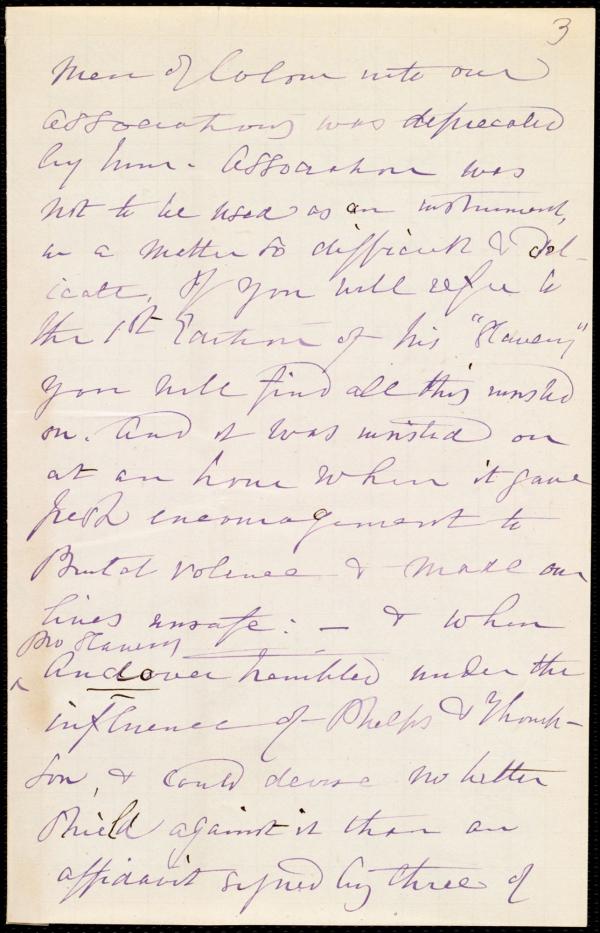 3
Men of Colour into our
associations was deprecated
by him. Association was
not to be used as an instrument,
in a matter so difficult & del-
icate. If you will refer to
the 1st Edition of his "Slavery"
you will find all this insisted
on. And it was insisted on
at an hour when it gave
fresh encouragement to
Brutal volence & made our
lives unsafe: — & when
Pro Slavery
^ Andover trembled under the
influence of Phelps & Thomp-
son, & could devise no better
shield against it than an
affidavit signed by three of